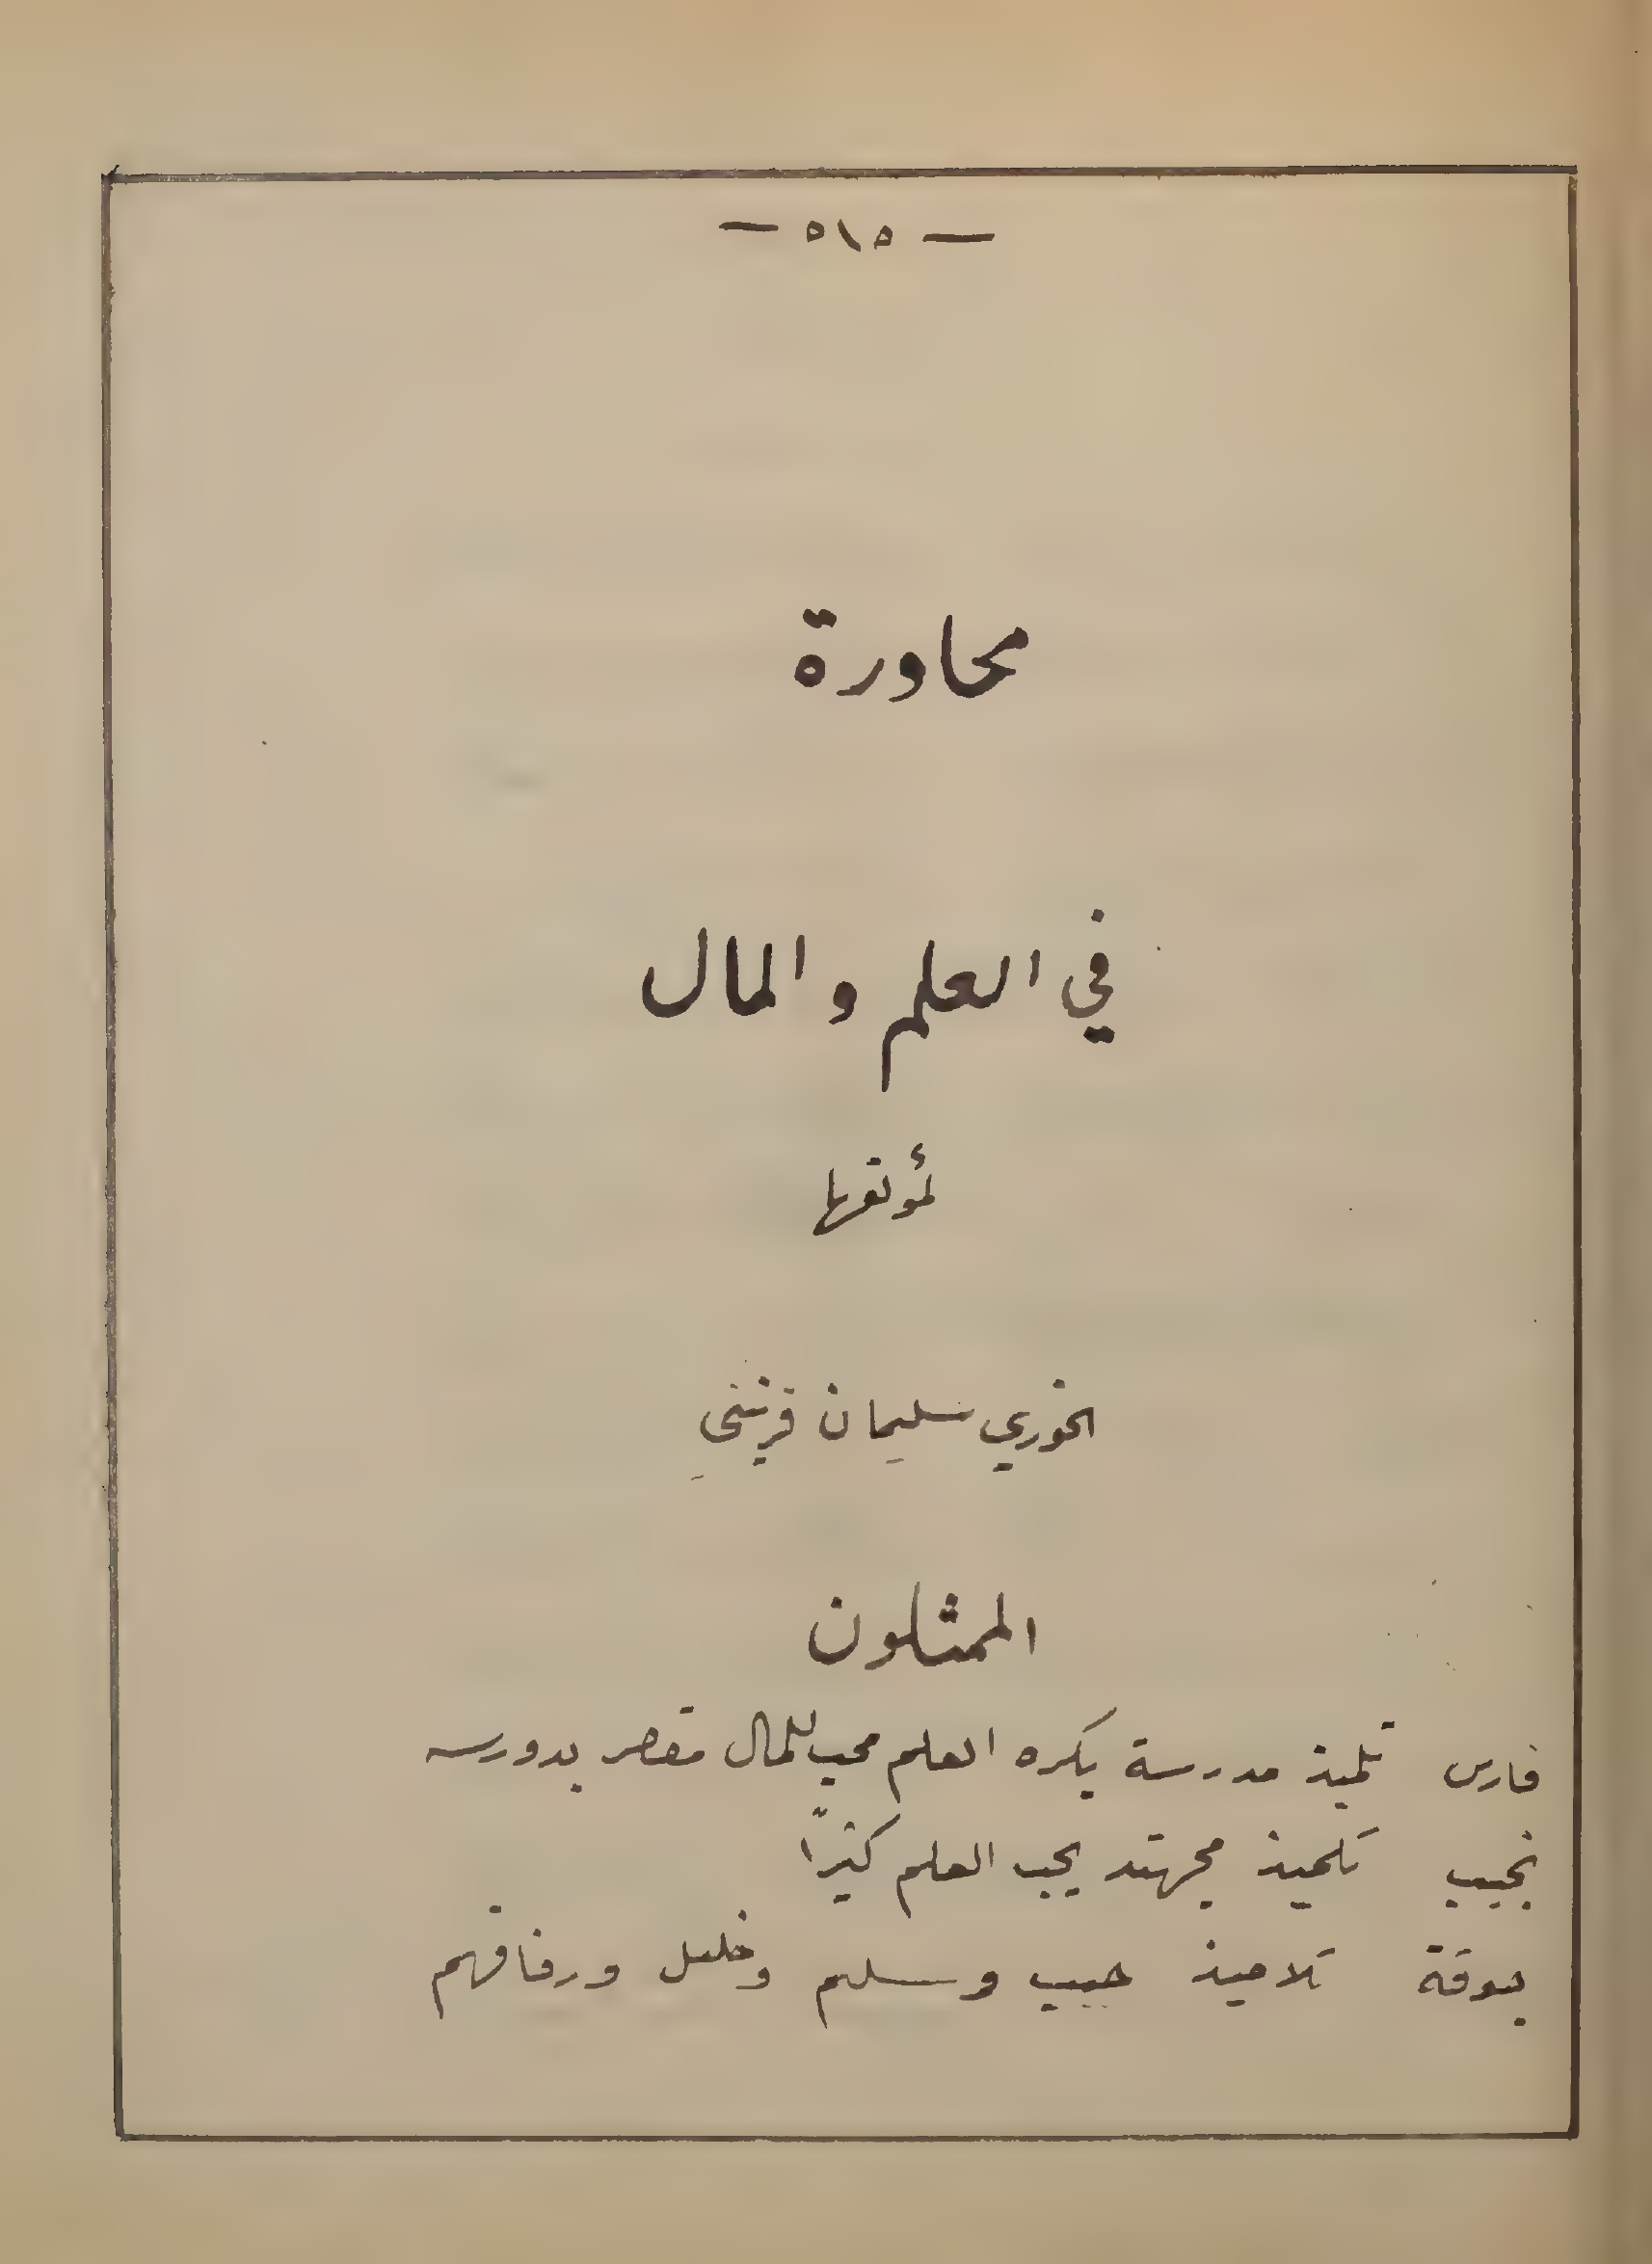 — ٥١٥ —
محاورة
في العلم والمال
لمؤلفها
الخوري سليمان
الممثلون
فارس تلميذ مدرسة يكره العلم محب للمال مقصر بدورسه
نجيب تلميذ مجهتد يحب العلم كثيرًا
جوقة تلاميذ حبيب وسليم وخليل ورفاقهم